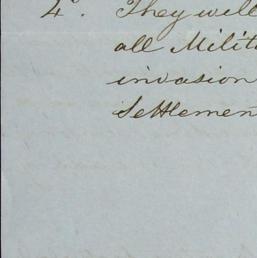 4º. They will
all Milit
invasion
Settlemen